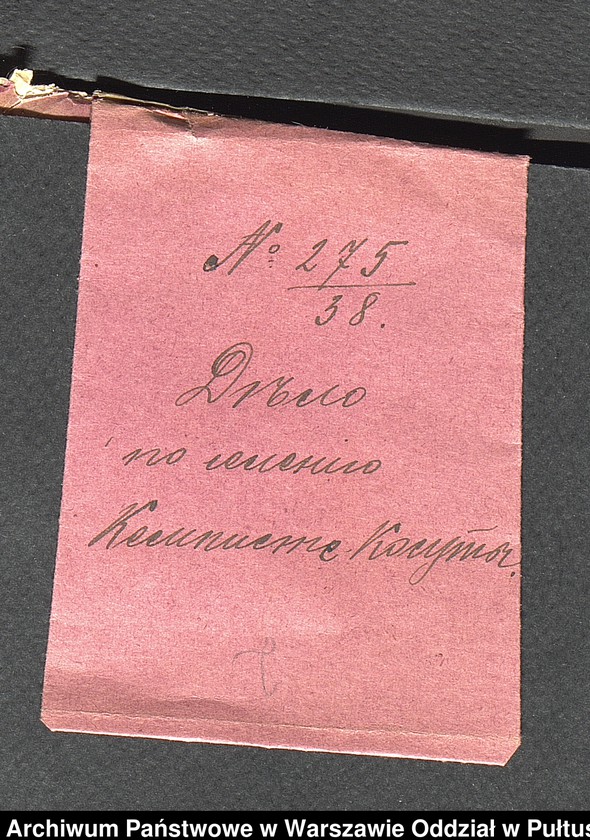 № 275
38.
Дѣло
по имению
Кемписте Косуты.
Archiwum Państwowe w Warszawie Oddział w Pułtus